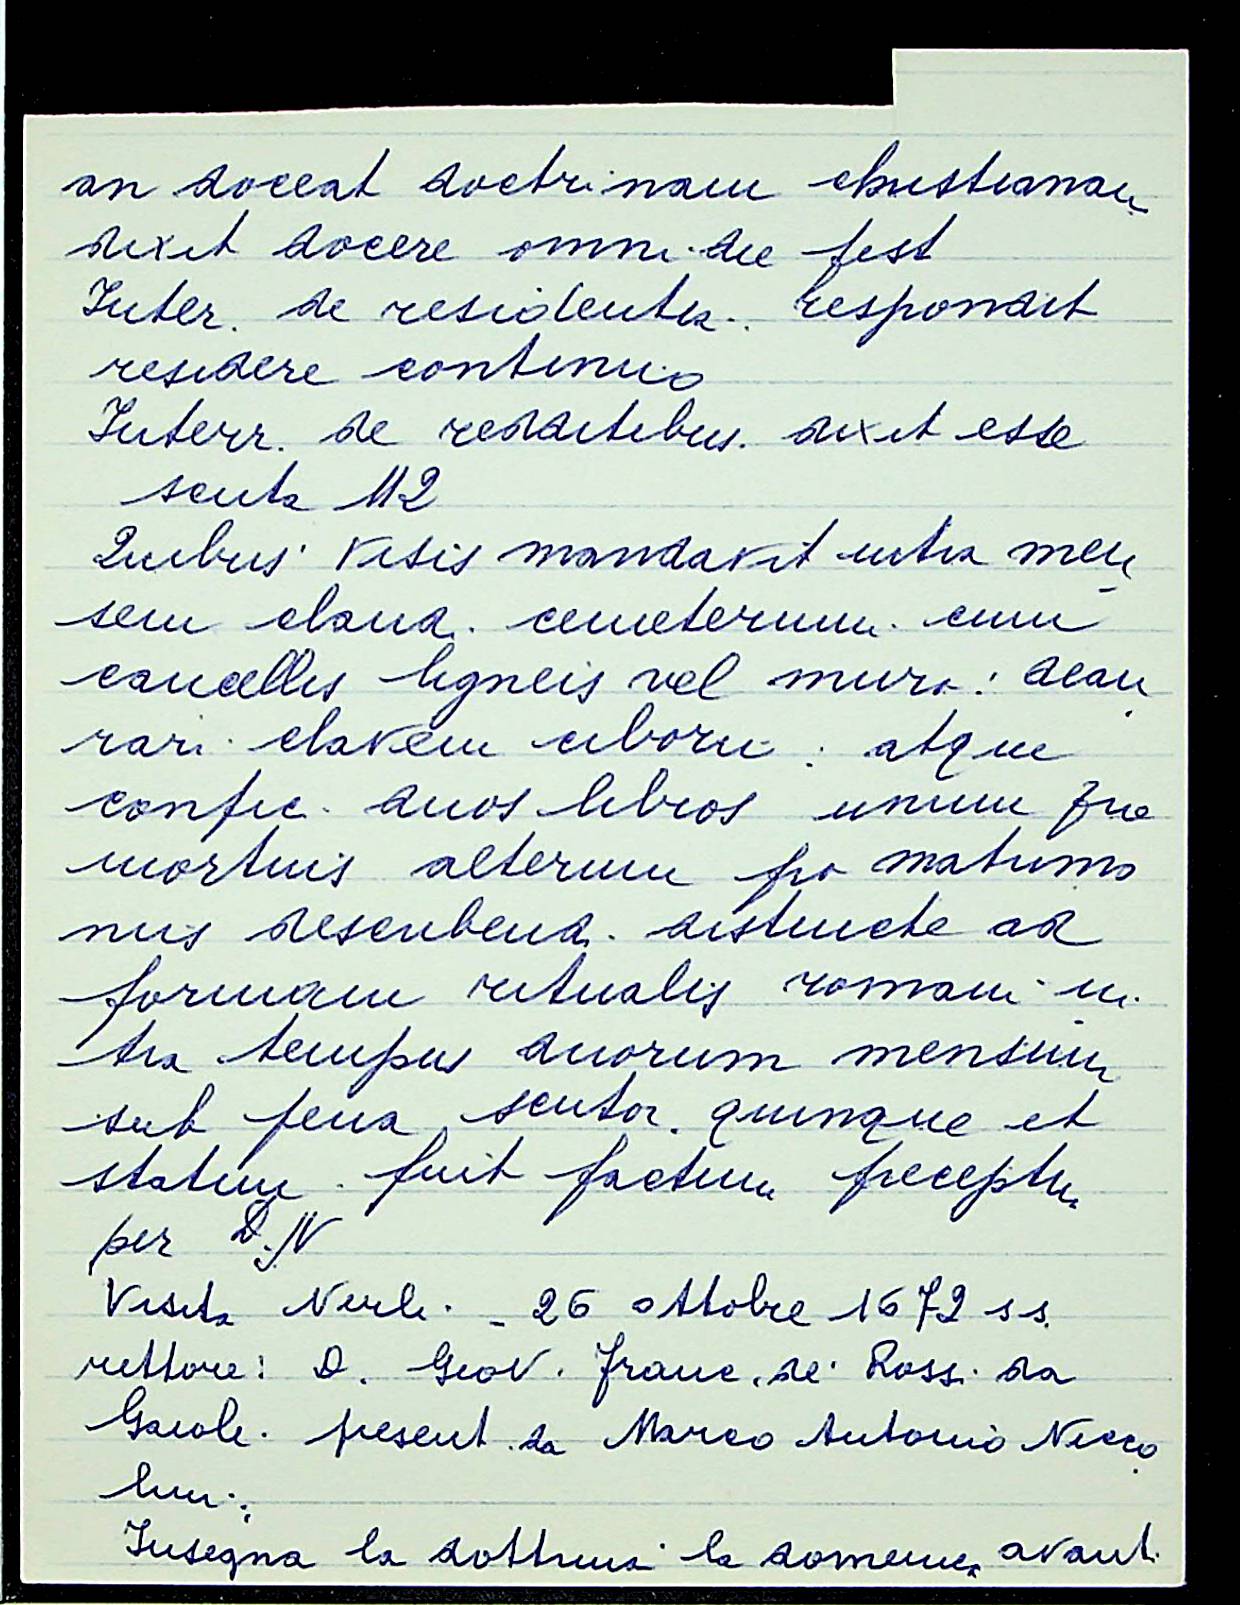 an doceat doctrinam christianam
dixit docere omni die fest
Inter. de residentia. respondit
residere continuo
Interr. de redditibus. dixit esse
scuta 112
Quibus visis mandavit intra men
sem claud. cemeterium cum
cancellis ligneis vel muro: deau
rari clavem ciborii: atque
confic. duos libros unum pro
mortuis alterum pro matrimo
niis describend. distincte ad
formam ritualis romani in
tra tempus duorum mensium
sub pena scutor. quinque et
statim fuit factum preceptu
per D. N
Visita Nerli - 26 ottobre 1672 ss.
rettore: D. Giov. Franc. de' Rossi da
Gaiole present. da Marco Antonio Nicco
lini:
Insegna la dottrina la domenica avanti